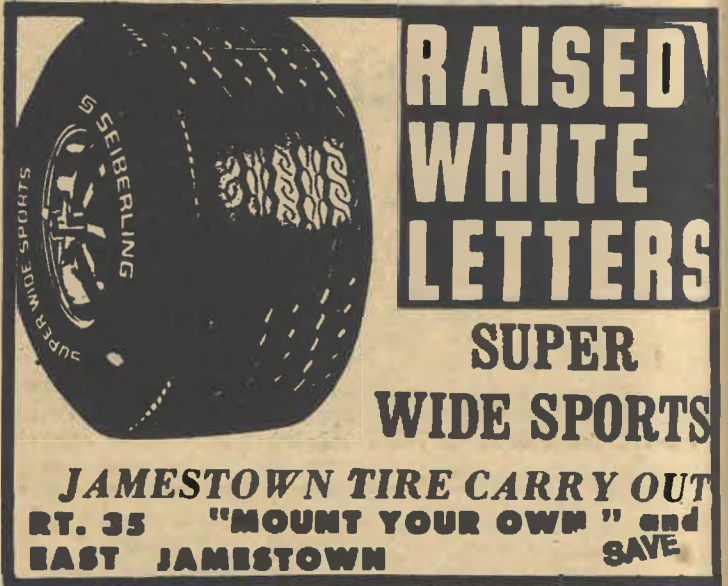 S SEIBERLING
SUPER WIDE SPORTS
RAISED
WHITE
LETTERS
SUPER
WIDE SPORTS
JAMESTOWN TIRE CARRY OUT
RT. 35 "MOUNT YOUR OWN" and
EAST JAMESTOWN SAVE